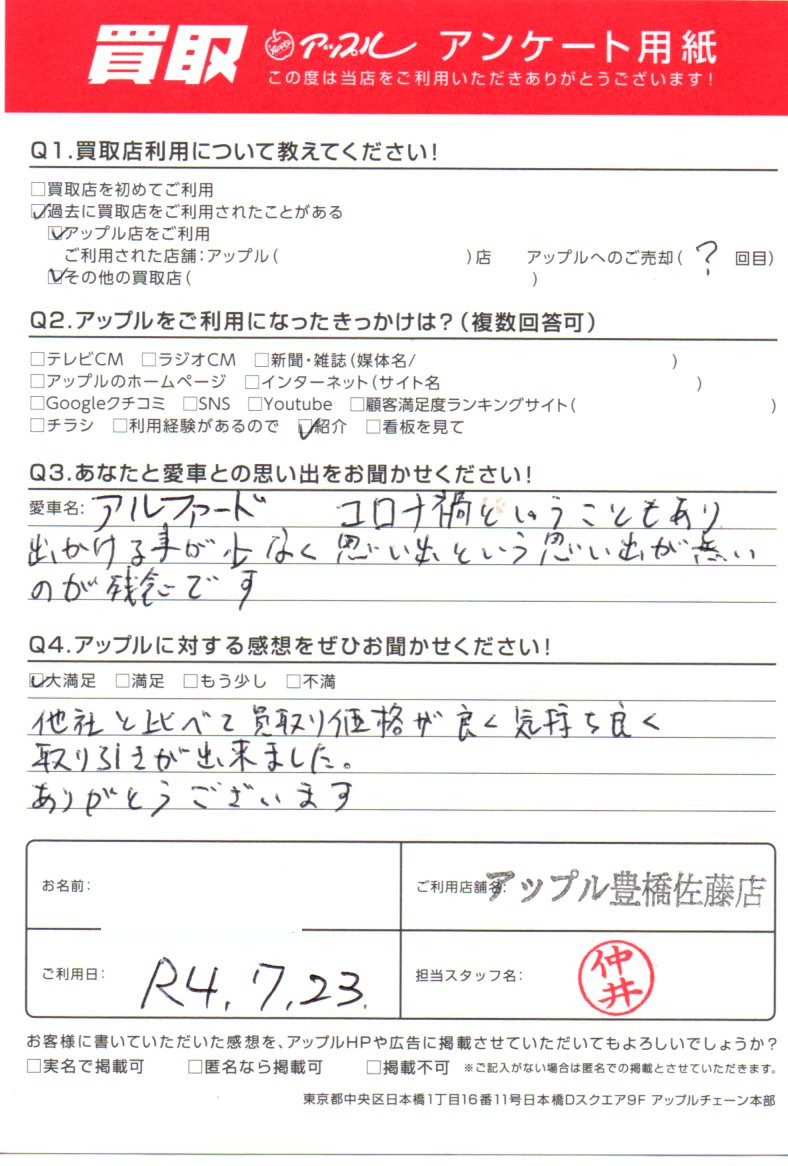 買取 Apple アップル アンケート用紙
この度は当店をご利用いただきありがとうございます!
Q1.買取店利用について教えてください!
□買取店を初めてご利用
☑過去に買取店をご利用されたことがある
☑アップル店をご利用
ご利用された店舗:アップル( )店 アップルへのご売却( ? 回目)
☑その他の買取店( )
Q2.アップルをご利用になったきっかけは?(複数回答可)
□テレビCM □ラジオCM □新聞・雑誌(媒体名/ )
□アップルのホームページ □インターネット(サイト名 )
□Googleクチコミ □SNS □Youtube □顧客満足度ランキングサイト( )
□チラシ □利用経験があるので ☑紹介 □看板を見て
Q3.あなたと愛車との思い出をお聞かせください!
愛車名: アルファード コロナ禍ということもあり
出かける事が少なく思い出という思い出が無い
のが残念です
Q4.アップルに対する感想をぜひお聞かせください!
☑大満足 □満足 □もう少し □不満
他社と比べて買取り価格が良く気持ち良く
取り引きが出来ました。
ありがとうございます
お名前: ご利用店舗名: アップル豊橋佐藤店
ご利用日: R4,7,23. 担当スタッフ名: 仲井
お客様に書いていただいた感想を、アップルHPや広告に掲載させていただいてもよろしいでしょうか?
□実名で掲載可 □匿名なら掲載可 □掲載不可 ※ご記入がない場合は匿名での掲載とさせていただきます。
東京都中央区日本橋1丁目16番11号日本橋Dスクエア9F アップルチェーン本部